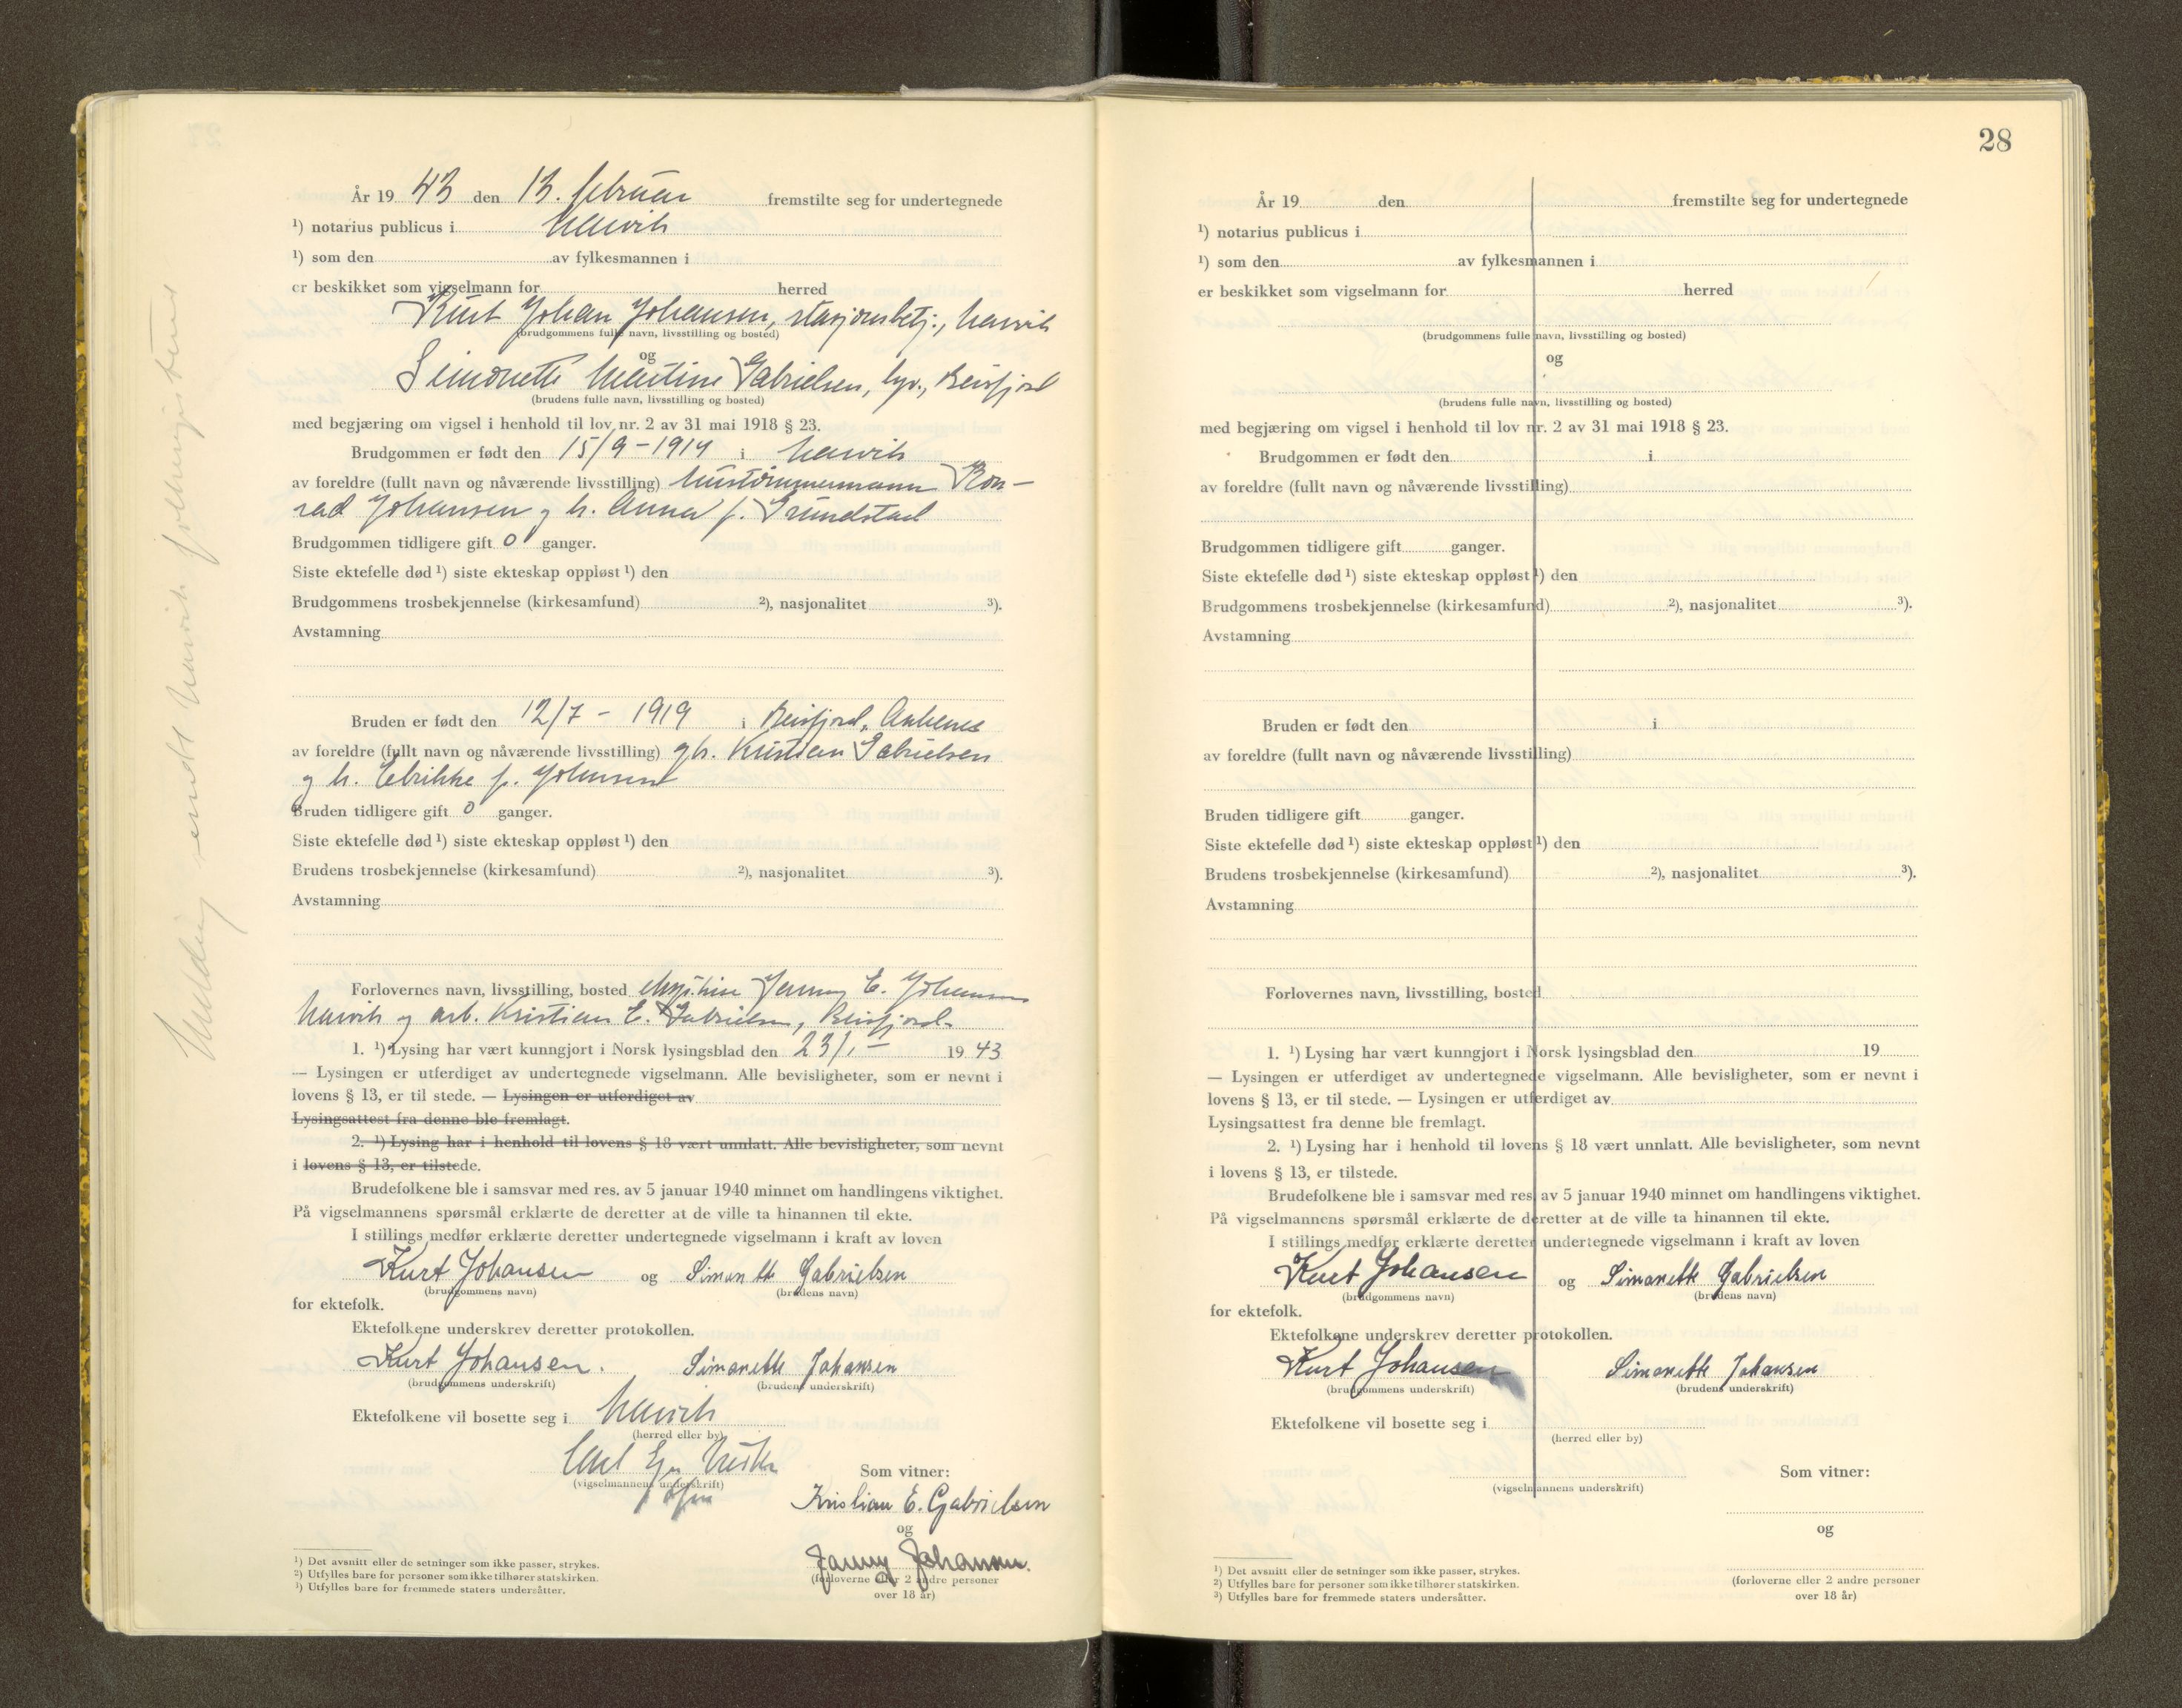 År 19 43 den 13. februar fremstilte seg for undertegnede
¹) notarius publicus i Narvik
¹) som den av fylkesmannen i
er beskikket som vigselmann for herred
Kurt Johan Johansen, stasjonsbetj., Narvik
(brudgommens fulle navn, livsstilling og bosted)
og
Simonette Martine Gabrielsen, Beisfjord
(brudens fulle navn, livsstilling og bosted)
med begjæring om vigsel i henhold til lov nr. 2 av 31 mai 1918 § 23.
Brudgommen er født den 15/9 - 1914 i Narvik
av foreldre (fullt navn og nåværende livsstilling) hustømmermann Kon-
rad Johansen og h. Anna f. Grundstad
Brudgommen tidligere gift 0 ganger.
Siste ektefelle død ¹) siste ekteskap oppløst ¹) den
Brudgommens trosbekjennelse (kirkesamfund) ²), nasjonalitet ³).
Avstamning
Bruden er født den 12/7 - 1919 i Beisfjord, Ankenes
av foreldre (fullt navn og nåværende livsstilling) gbr. Kristian Gabrielsen
og h. f. Johansen
Bruden tidligere gift 0 ganger.
Siste ektefelle død ¹) siste ekteskap oppløst ¹) den
Brudens trosbekjennelse (kirkesamfund) ²), nasjonalitet ³).
Avstamning
Forlovernes navn, livsstilling, bosted Jenny E. Johansen
Narvik og arb. Kristian E. Gabrielsen, Beisfjord
1. ¹) Lysing har vært kunngjort i Norsk lysingsblad den 23/1 19 43
— Lysingen er utferdiget av undertegnede vigselmann. Alle bevisligheter, som er nevnt i
lovens § 13, er til stede. — Lysingen er utferdiget av
Lysingsattest fra denne ble fremlagt.
2. ¹) Lysing har i henhold til lovens § 18 vært unnlatt. Alle bevisligheter, som nevnt
i lovens § 13, er tilstede.
Brudefolkene ble i samsvar med res. av 5 januar 1940 minnet om handlingens viktighet.
På vigselmannens spørsmål erklærte de deretter at de ville ta hinannen til ekte.
I stillings medfør erklærte deretter undertegnede vigselmann i kraft av loven
Kurt Johansen og Simonette Gabrielsen
(brudgommens navn) (brudens navn)
for ektefolk.
Ektefolkene underskrev deretter protokollen.
Kurt Johansen. Simonette Johansen
(brudgommens underskrift) (brudens underskrift)
Ektefolkene vil bosette seg i Narvik
(herred eller by)
(vigselmannens underskrift)
Som vitner:
Kristian E. Gabrielsen
og
Jenny Johansen.
(forloverne eller 2 andre personer
over 18 år)
¹) Det avsnitt eller de setninger som ikke passer, strykes.
²) Utfylles bare for personer som ikke tilhører statskirken.
³) Utfylles bare for fremmede staters undersåtter.
Melding sendt Narvik folkeregister
28
År 19 den fremstilte seg for undertegnede
¹) notarius publicus i
¹) som den av fylkesmannen i
er beskikket som vigselmann for herred
(brudgommens fulle navn, livsstilling og bosted)
og
(brudens fulle navn, livsstilling og bosted)
med begjæring om vigsel i henhold til lov nr. 2 av 31 mai 1918 § 23.
Brudgommen er født den i
av foreldre (fullt navn og nåværende livsstilling)
Brudgommen tidligere gift ganger.
Siste ektefelle død ¹) siste ekteskap oppløst ¹) den
Brudgommens trosbekjennelse (kirkesamfund) ²), nasjonalitet ³).
Avstamning
Bruden er født den i
av foreldre (fullt navn og nåværende livsstilling)
Bruden tidligere gift ganger.
Siste ektefelle død ¹) siste ekteskap oppløst ¹) den
Brudens trosbekjennelse (kirkesamfund) ²), nasjonalitet ³).
Avstamning
Forlovernes navn, livsstilling, bosted
1. ¹) Lysing har vært kunngjort i Norsk lysingsblad den 19
— Lysingen er utferdiget av undertegnede vigselmann. Alle bevisligheter, som er nevnt i
lovens § 13, er til stede. — Lysingen er utferdiget av
Lysingsattest fra denne ble fremlagt.
2. ¹) Lysing har i henhold til lovens § 18 vært unnlatt. Alle bevisligheter, som nevnt
i lovens § 13, er tilstede.
Brudefolkene ble i samsvar med res. av 5 januar 1940 minnet om handlingens viktighet.
På vigselmannens spørsmål erklærte de deretter at de ville ta hinannen til ekte.
I stillings medfør erklærte deretter undertegnede vigselmann i kraft av loven
Kurt Johansen og Simonette Gabrielsen
(brudgommens navn) (brudens navn)
for ektefolk.
Ektefolkene underskrev deretter protokollen.
Kurt Johansen Simonette Johansen
(brudgommens underskrift) (brudens underskrift)
Ektefolkene vil bosette seg i
(herred eller by)
(vigselmannens underskrift)
Som vitner:
og
(forloverne eller 2 andre personer
over 18 år)
¹) Det avsnitt eller de setninger som ikke passer, strykes.
²) Utfylles bare for personer som ikke tilhører statskirken.
³) Utfylles bare for fremmede staters undersåtter.